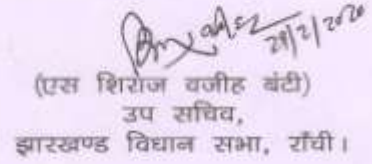 28/2/2020
(एस शिराज वजीह बंटी)
उप सचिव,
झारखण्ड विधान सभा, राँची।